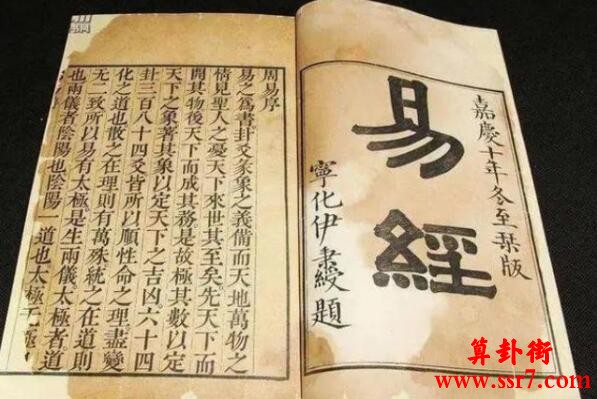 嘉慶十年冬至栞版
易經
寧化伊秉綬題
周易序
易之爲書卦爻彖象之義備而天地萬物之
情見聖人之憂天下來世其至矣先天下而
開其物後天下而成其務是故極其數以定
天下之象著其象以定天下之吉凶六十四
卦三百八十四爻皆所以順性命之理盡變
化之道也散之在理則有萬殊統之在道則
无二致所以易有太極是生兩儀太極者道
也兩儀者陰陽也陰陽一道也太極无極
算卦街
www.ssr7.com